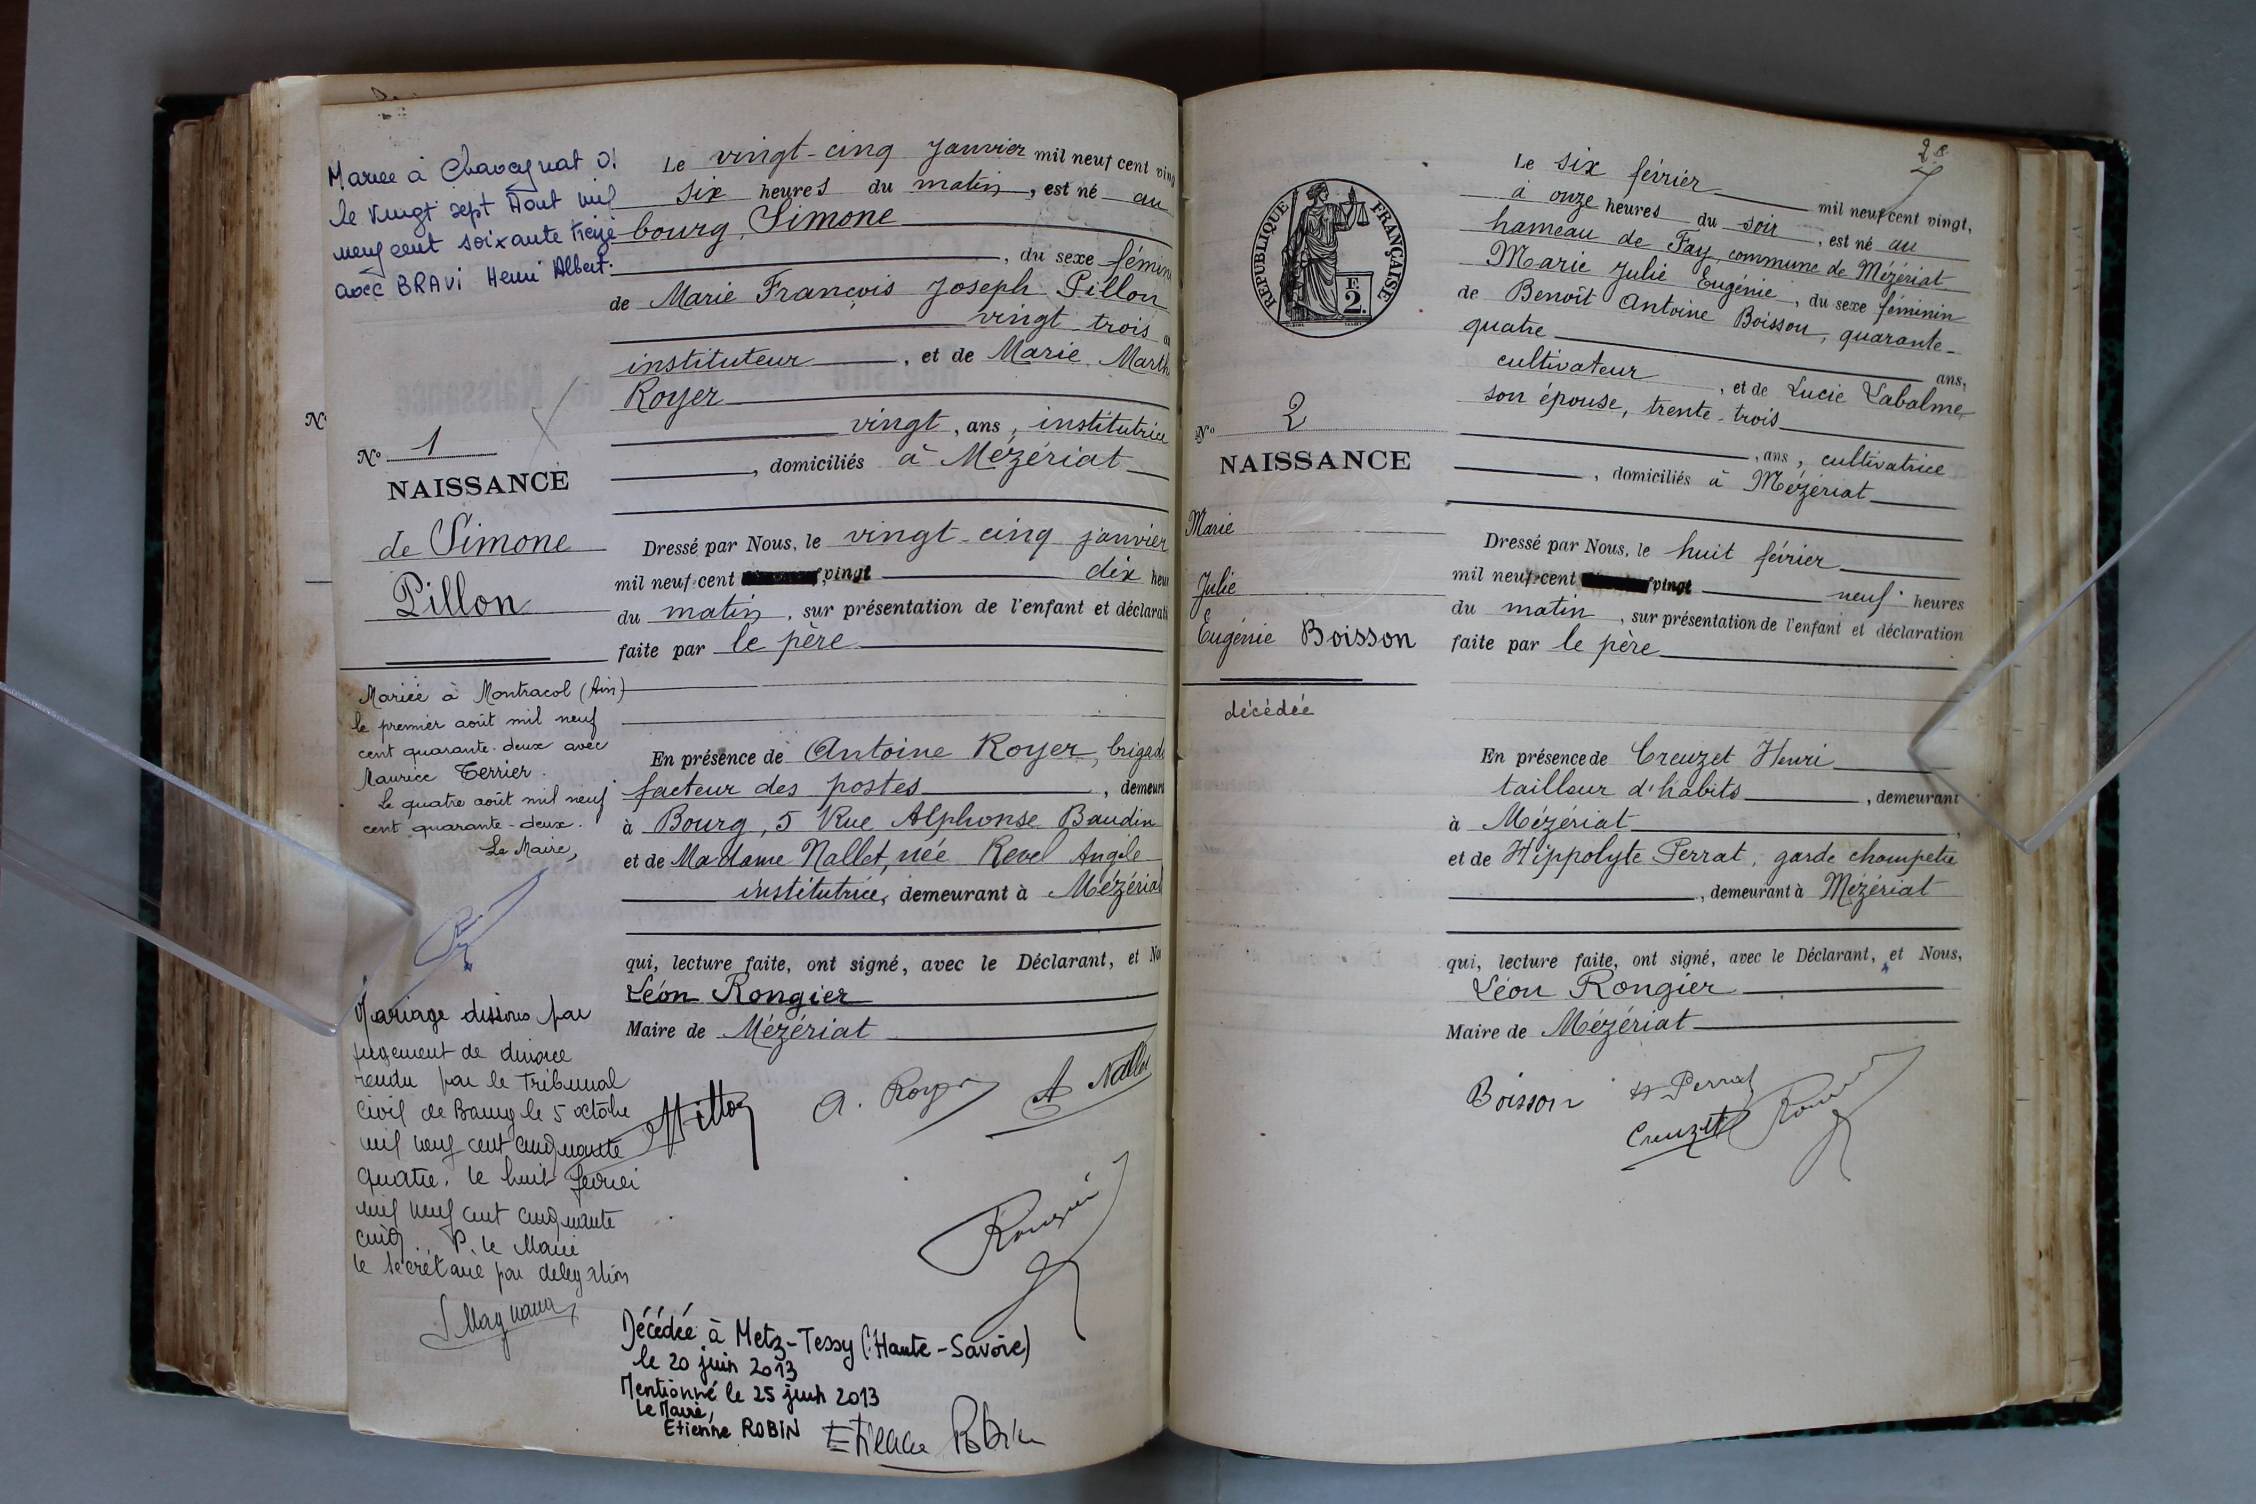 Mariée à Chaveyriat 01
le vingt sept Août mil
neuf cent soixante treize
avec BRAVI Henri Albert.
N° 1
NAISSANCE
de Simone
Pillon
Mariée à Montracol (Ain)
le premier août mil neuf
cent quarante-deux avec
Maurice Terrier.
Le quatre août mil neuf
cent quarante-deux.
Le Maire,
Mariage dissous par
jugement de divorce
rendu par le Tribunal
Civil de Bourg le 5 octobre
mil neuf cent cinquante
quatre. le huit février
mil neuf cent cinquante
cinq P. le Maire
le secrétaire par délégation
Le vingt-cinq Janvier mil neuf cent ving
six heures du matin, est né au
bourg, Simone
, du sexe fémin
de Marie François Joseph Pillon
vingt trois a
instituteur, et de Marie Marth
Royer
vingt, ans, institutrice
, domiciliés à Mézériat
Dressé par Nous, le vingt-cinq janvier
mil neuf cent vingt dix heur
du matin, sur présentation de l'enfant et déclarati
faite par le père
En présence de Antoine Royer, brigad
facteur des postes, demeura
à Bourg, 5 Rue Alphonse Baudin
et de Madame Nallet, née Revel Angèle
institutrice, demeurant à Mézériat
qui, lecture faite, ont signé, avec le Déclarant, et No
Léon Rongier
Maire de Mézériat
A. Royer
A Nallet
Rongier
Décédée à Metz-Tessy (Haute-Savoie)
le 20 juin 2013
Mentionné le 25 juin 2013
Le Maire,
Etienne ROBIN
Etienne Robin
28
RÉPUBLIQUE FRANÇAISE
F.
2.
N° 2
NAISSANCE
Marie
Julie
Eugénie Boisson
décédée
Le six février mil neuf cent vingt,
à onze heures du soir, est né au
hameau de Fay, commune de Mézériat
Marie Julie Eugénie, du sexe féminin
de Benoît Antoine Boisson, quarante-
quatre ans,
cultivateur, et de Lucie Labalme
son épouse, trente-trois
, ans, cultivatrice
, domiciliés à Mézériat
Dressé par Nous, le huit février
mil neuf cent vingt neuf heures
du matin, sur présentation de l'enfant et déclaration
faite par le père
En présence de Creuzet Henri
tailleur d'habits, demeurant
à Mézériat
et de Hippolyte Perrat, garde champetre
, demeurant à Mézériat
qui, lecture faite, ont signé, avec le Déclarant, et Nous,
Léon Rongier
Maire de Mézériat
Boisson
H Perrat
Creuzet
Rongier